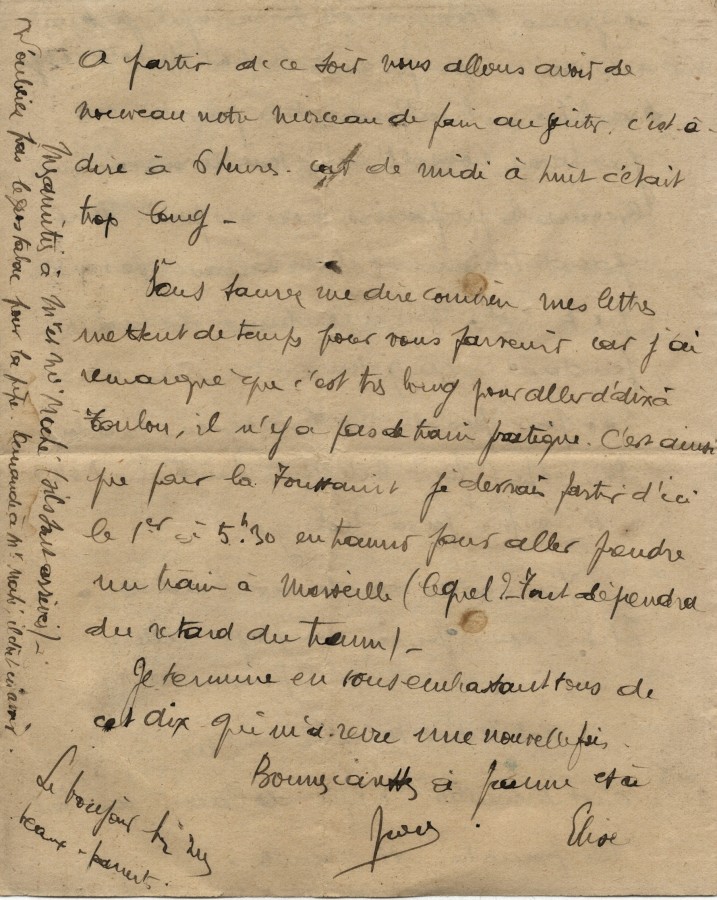 A partir de ce soir nous allons avoir de
nouveau notre morceau de pain au goûter, c'est à
dire à 6 heures. car de midi à huit c'était
trop long -
Vous saurez me dire combien mes lettres
mettent de temps pour vous parvenir car j'ai
remarqué que c'est très long pour aller d'Aix à
Toulon, il n'y a pas de train pratique. C'est ainsi
que pour la Toussaint je devrais partir d'ici
le 1er à 5h.30 en tramw pour aller prendre
un train à Marseille (lequel? Tout dépendra
du retard du tramw) -
Je termine en vous embrassant tous de
cet Aix qui m'a revu une nouvelle fois.
Bonnes à Jeanne et à
Elise
Le bonjour à
beaux-parents.
à Mr et Me (s'ils sont arrivés) -
N'oubliez pas le tabac pour la pipe. Demande à Mr il doit en avoir.